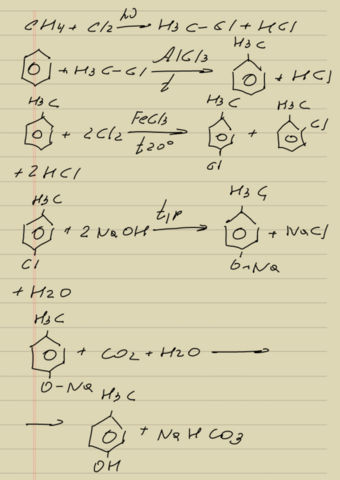 CH4 + Cl2 hν⟶ H3C-Cl + HCl
+ H3C-Cl AlCl3 t⟶ H3C + HCl
H3C + 2Cl2 FeCl3 t20°⟶ H3C Cl + H3C Cl
+ 2HCl
H3C Cl + 2NaOH t,p⟶ H3C O-Na + NaCl
+ H2O
H3C O-Na + CO2 + H2O ⟶
⟶ H3C OH + NaHCO3